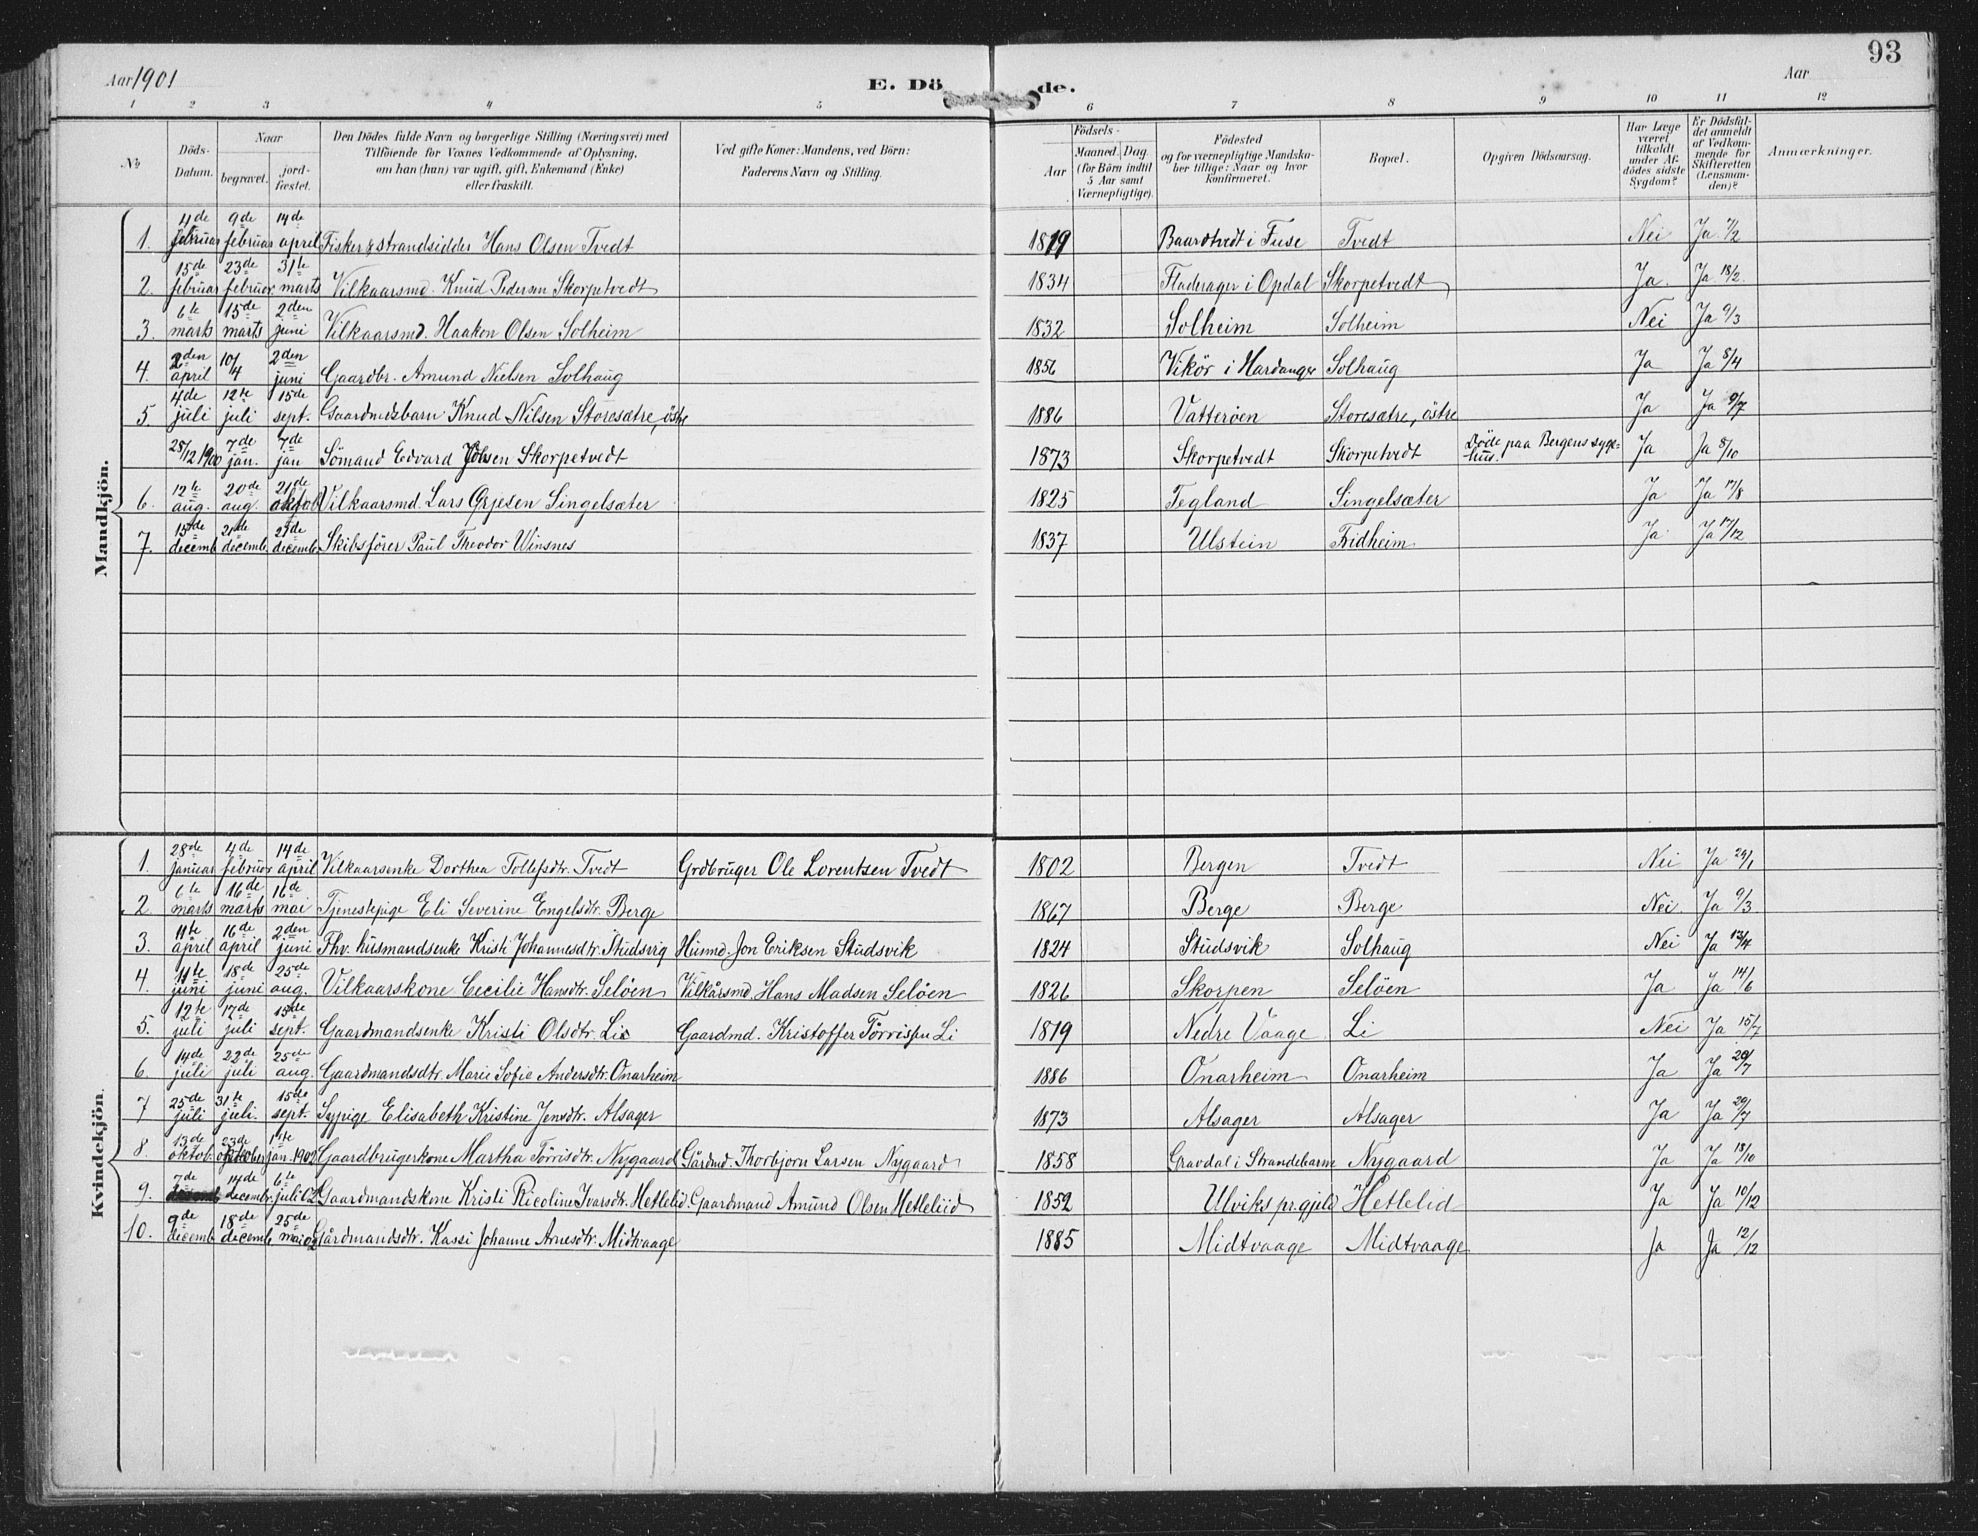 93
Aar 1901 E. Dö de. Aar
1 2 3 4 5 6 7 8 9 10 11 12
No
Döds-Datum.
Naar
begravet.
jord-fæstet.
Den Dödes fulde Navn og borgerlige Stilling (Næringsvei) med
Tilföiende for Voxnes Vedkommende af Oplysning,
om han (hun) var ugift, gift, Enkemand (Enke)
eller fraskilt.
Ved gifte Koner: Mandens, ved Börn:
Faderens Navn og Stilling.
Födsels-
Aar
Maaned. Dag
(for Börn indtil
5 Aar samt
Værnepligtige).
Födested
og for værnepligtige Mandska-
ber tillige: Naar og hvor
konfirmeret.
Bopæl.
Opgiven Dödsaarsag.
Har Læge
været
tilkaldt
under Af-
dödes sidste
Sygdom?
Er Dödsfal-
det anmeldt
af Vedkom-
mende for
Skifteretten
(Lensman-
den)?
Anmærkninger.
Mandkjön.
1. 4de februar 9de februar 14de april Fisker & strandsidder Hans Olsen Tvedt 1819 Baardtvedt i Fuse Tvedt Nei Ja 7/2
2. 15de februar 23de februar 31te marts Vilkaarsmd. Knud Pedersen Skorpetvedt 1834 Fladerager i Opdal Skorpetvedt Ja. Ja 18/2
3. 6te marts 15de marts 2den juni Vilkaarsmd. Haakon Olsen Solheim 1832 Solheim Solheim Nei Ja 9/3
4. 2den april 10/4 2den juni Gaardbr. Amund Nielsen Solhaug 1856 Vikör i Hardanger Solhaug Ja Ja 8/4
5. 4de juli 12te juli 15de sept. Gaardmdsbarn Knud Nilsen Storesætre, östre 1886 Vatteröen Storesætre, östre Ja Ja 9/7
28/12 1900 7de jan. 7de jan Sömand Edvard Johnsen Skorpetvedt 1873 Skorpetvedt Skorpetvedt Döde paa Bergens syge-hus. Ja Ja 8/10
6. 12te aug. 20de aug. 21de oktob. Vilkaarsmd. Lars Ørjesen Singelsæter 1825 Tegland Singelsæter Ja Ja 17/8
7. 15de decemb. 21de decemb. 21de decemb. Skibsförer Paul Theodor Winsnes 1837 Ulstein Fridheim Ja Ja 17/12
Kvindekjön.
1. 28de januar 4de februar 14de april Vilkaarsenke Dorthea Tollefsdtr. Tvedt Grdbruger Ole Lorentsen Tvedt 1802 Bergen Tvedt Nei Ja 29/1
2. 6te marts 16de marts 16de mai Tjenestepige Eli Severine Engelsdtr. Berge 1867 Berge Berge Nei. Ja 9/3
3. 11te april 16de april 2den juni Fhv. husmandsenke Kristi Johannesdtr. Studsvig Husmd. Jon Eriksen Studsvik 1824 Studsvik Solhaug Nei Ja 13/4
4. 11te juni 18de juni 25de aug. Vilkaarskone Cecilie Hansdtr. Selöen Vilkårsmd. Hans Madsen Selöen 1826 Skorpen Selöen Ja Ja 14/6
5. 12te juli 17de juli 15de sept. Gaardmandsenke Kristi Olsdtr. Li Gaardmd. Kristoffer Törrissen Li 1819 Nedre Vaage Li Nei Ja 15/7
6. 14de juli 22de juli 25de aug. Gaardmandsdtr. Marie Sofie Andersdtr. Onarheim 1886 Onarheim Onarheim Ja Ja 20/7
7 25de juli 31te juli. 15de sept. Sypige Elisabeth Kristine Jensdtr. Alsager 1873 Alsager Alsager Ja Ja 29/7
8. 13de oktob. 23de oktober 1ste jan. 1902 Gaardbrugerkone Martha Törrisdtr. Nygaard Gårdmd. Thorbjorn Larsen Nygaard 1858 Gravdal i Strandebarm Nygaard Ja Ja 18/10
9. 7de decemb. 14de decembr. 6te juli 02 Gaardmandskone Kristi Nicoline Ivarsdtr. Hetlelid. Gaardmand Amund Olsen Hetleliid 1852 Ulviks pr.gjeld Hetlelid Ja Ja 10/12
10. 9de decemb. 18de decemb. 25de mai 02 Gårdmandsdtr. Kassi Johanne Arnesdtr. Midtvaage 1885 Midtvaage Midtvaage Ja Ja 12/12